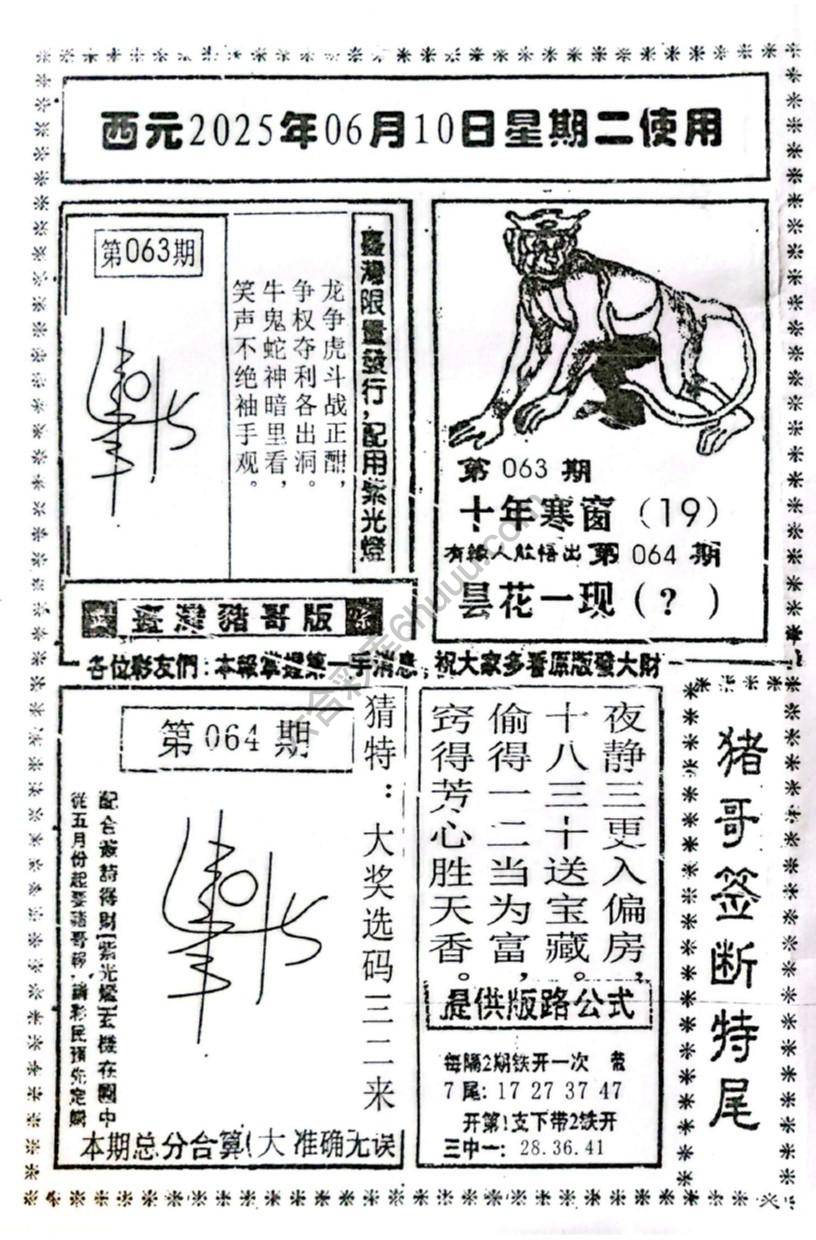 西元2025年06月10日星期二使用
第063期
龙争虎斗战正酣，
争权夺利各出洞。
牛鬼蛇神暗里看，
笑声不绝袖手观。
臺灣限量發行，配用紫光燈
臺灣豬哥版
第 063 期
十年寒窗（19）
有緣人能悟出 第 064 期
昙花一现（？）
各位彩友們：本報掌握第一手消息，祝大家多看原版發大財
第064期
猜特：大奖选码三二来
從五月份起要豬哥報，請彩民預先定購
本期总分合算(大 准确无误
夜静三更入偏房，
十八三十送宝藏。
偷得一二当为富，
窍得芳心胜天香。
提供版路公式
每隔2期铁开一次
7尾：17 27 37 47
开第1支下带2铁开
三中一：28.36.41
猪哥签断特尾
六合彩库6huuu.com